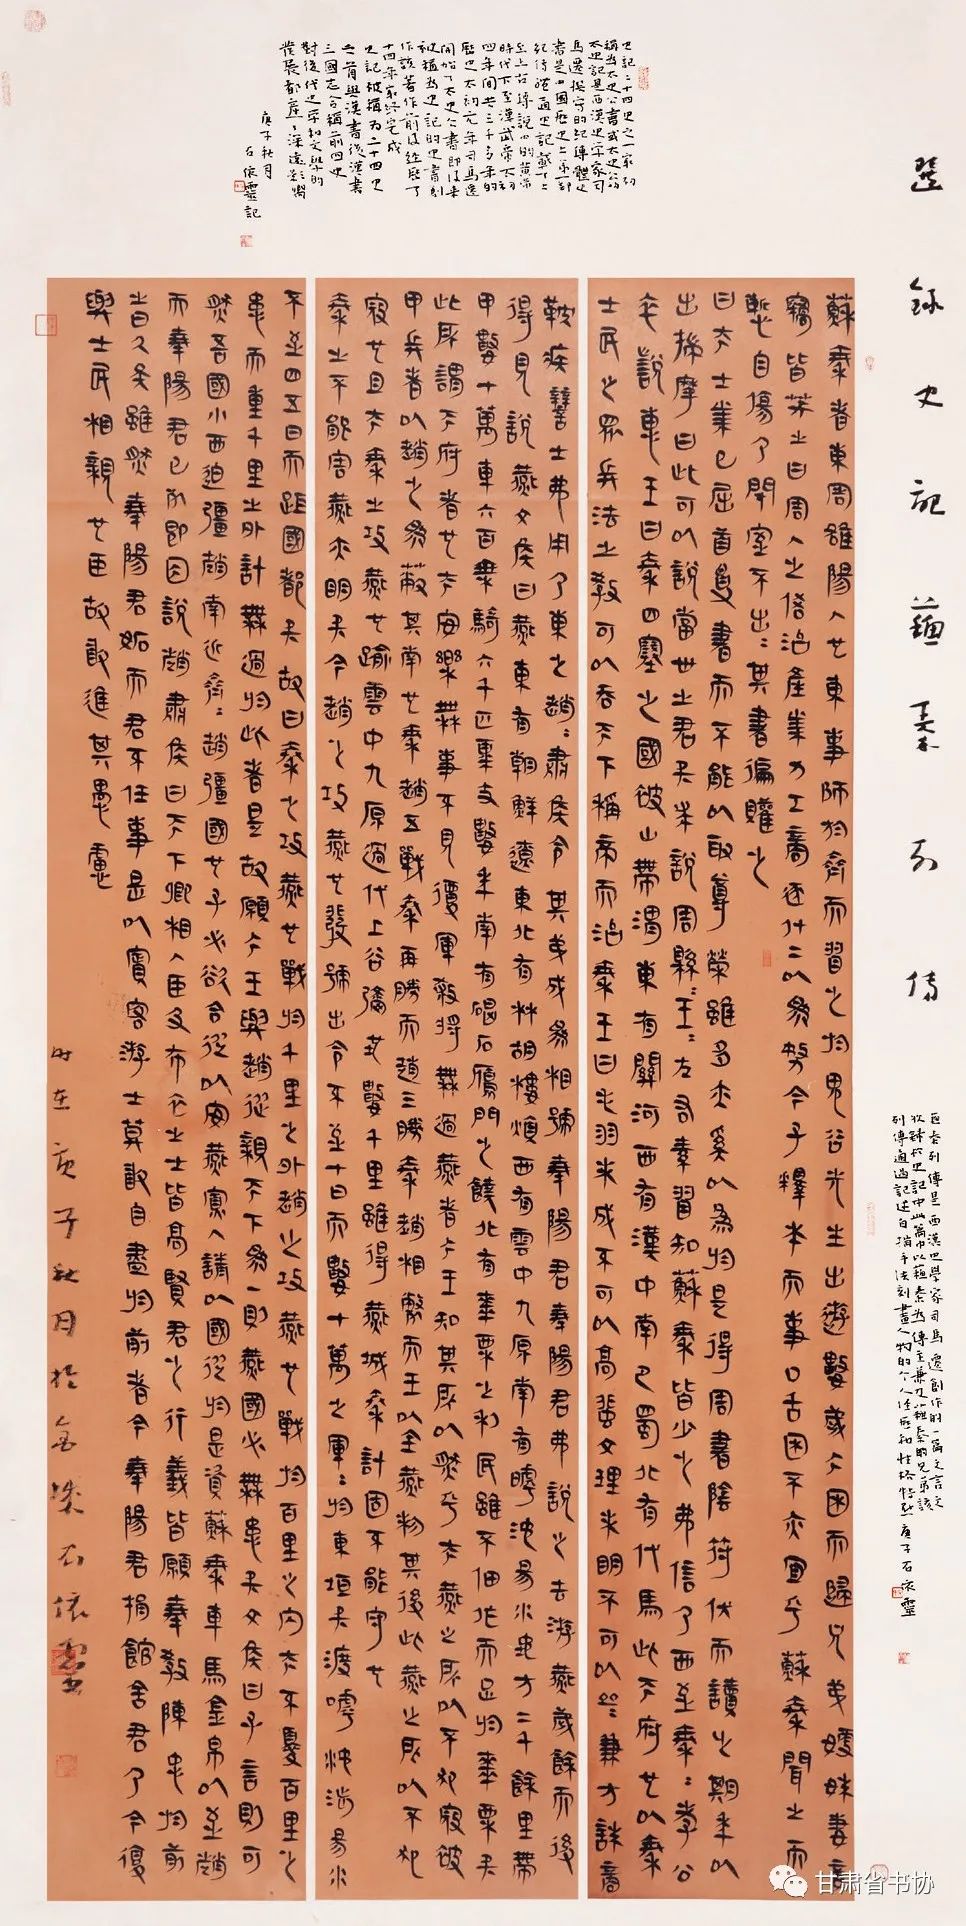 選錄史記蘇秦列傳
蘇秦列傳是西漢史學家司馬遷創作的一篇文言文
收錄於史記中此篇中以蘇秦為傳主兼及蘇秦的兄弟該
列傳通過記述白描手法刻畫人物的個人經歷和性格特點庚子石依靈
史記二十四史之一最初
稱為太史公書或太史公記
太史記是西漢史學家司
馬遷撰寫的紀傳體史
書是中國歷史上第一部
紀傳體通史記載了上
至上古傳說中的黃帝
時代下至漢武帝太初
四年間共三千多年的
歷史太初元年司馬遷
開始了太史公書即後來
被稱為史記的史書創
作該著作前後經歷了
十四年最終完成
史記被稱為二十四史
之首與漢書後漢書
三國志合稱前四史
對後代史學和文學的
發展都產生深遠影響
庚子秋月
石依靈記
蘇秦者東周雒陽人也東事師於齊而習之於鬼谷先生出遊數歲大困而歸兄弟嫂妹妻妾
竊皆笑之曰周人之俗治產業力工商逐什二以為務今子釋本而事口舌困不亦宜乎蘇秦聞之而
慙自傷乃閉室不出々其書徧觀之
曰夫士業已屈首受書而不能以取尊榮雖多亦奚以為於是得周書陰符伏而讀之期年以
出揣摩曰此可以說當世之君矣求說周顯王々左右素習知蘇秦皆少之弗信乃西至秦々孝公
卒說惠王曰秦四塞之國被山帶渭東有關河西有漢中南巴蜀北有代馬此天府也以秦
士民之眾兵法之教可以吞天下稱帝而治秦王曰毛羽未成不可以高蜚文理未明不可以并兼方誅商
鞅疾辯士弗用乃東之趙々肅侯令其弟成為相號奉陽君奉陽君弗說之去游燕歲餘而後
得見說燕文侯曰燕東有朝鮮遼東北有林胡樓煩西有雲中九原南有嘑沱易水地方二千餘里帶
甲數十萬車六百乘騎六千匹粟支數年南有碣石鴈門之饒北有棗栗之利民雖不佃作而足於棗栗矣
此所謂天府者也夫安樂無事不見覆軍殺將無過燕者大王知其所以然乎夫燕之所以不犯寇被
甲兵者以趙之為蔽其南也秦趙五戰秦再勝而趙三勝秦趙相斃而王以全燕制其後此燕之所以不犯
寇也且夫秦之攻燕也踰雲中九原過代上谷彌地數千里雖得燕城秦計固不能守也
秦之不能害燕亦明矣今趙之攻燕也發號出令不至十日而數十萬之軍々於東垣矣渡嘑沱涉易水
不至四五日而距國都矣故曰秦之攻燕也戰於千里之外趙之攻燕也戰於百里之內夫不憂百里之
患而重千里之外計無過於此者是故願大王與趙從親天下為一則燕國必無患矣文侯曰子言則可
然吾國小西迫彊趙南近齊々趙彊國也子必欲合從以安燕寡人請以國從於是資蘇秦車馬金帛以至趙
而奉陽君已死即因說趙肅侯曰天下卿相人臣及布衣之士皆高賢君之行義皆願奉教陳忠於前
之日久矣雖然奉陽君妬而君不任事是以賓客游士莫敢自盡於前者今奉陽君捐館舍君乃今復
與士民相親也臣故敢進其愚慮
時在庚子秋月於金城石依靈
甘肃省书协